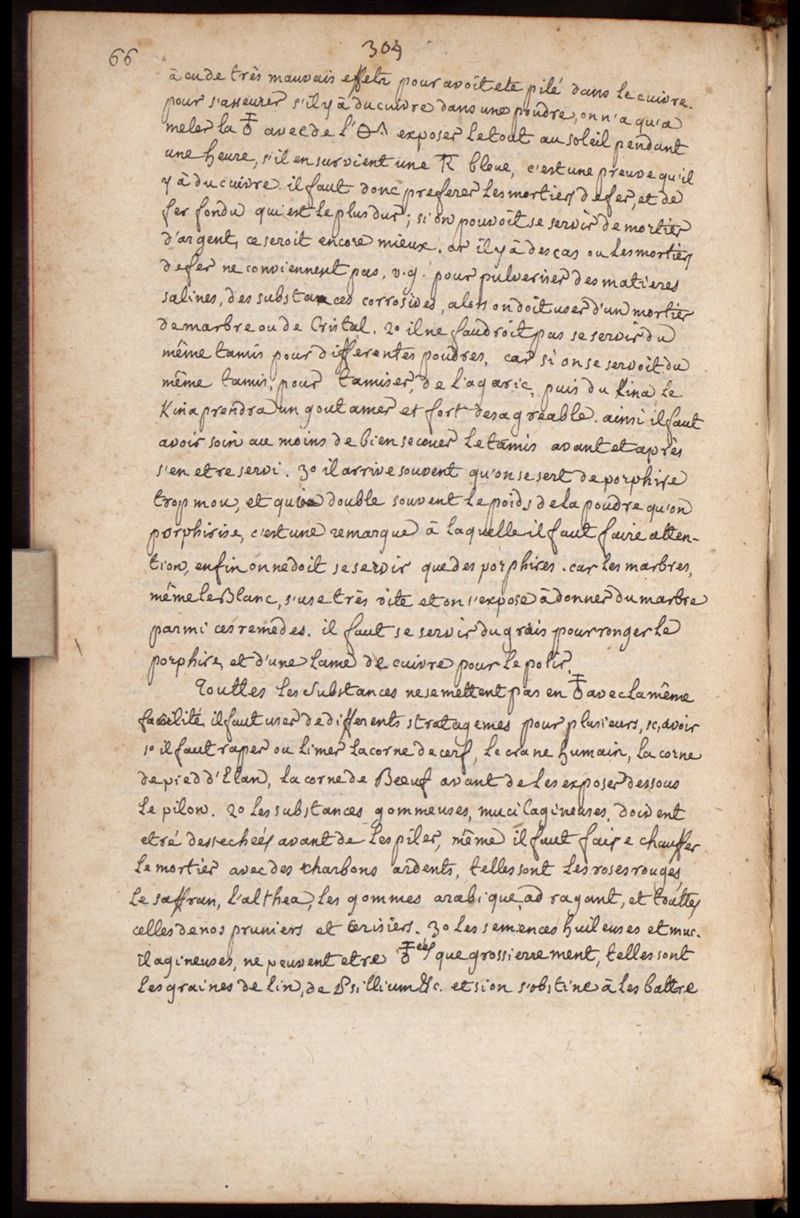 66
304
à eu de très mauvais effets pour avoit eté pilé dans le cuivre.
pour s'asseurer s'il y à du cuivre dans une poudre, on n'a qu'a
meler la avec de l' exposer le tout au soleil pendant
une heure, s'il en survient une bleue, c'est une preuve qu'il
y à du cuivre. il faut donc preferer les mortiers de fer, et de
fer fondu qui est le plus dur; si on pouvoit se servir de mortier
d'argent, ce seroit encore mieux. or il y à des cas ou les mortiers
de fer ne conviennent pas, v.g. pour pulveriser des matieres
salines, des substances corrosives, alors on doit user d'un mortier
de marbre ou de Cristal. 2o il ne faudroit pas se servir du
même tamis pour differentes poudres, car si on se servoit du
même tamis, pour tamiser, de l'agaric, puis du Kina, le
Kina prendra un gout amer et fort desagreable. ainsi il faut
avoir soin au moins de bien secouer le tamis avant et après
s'en etre servi. 3o il arrive souvent qu'on se sert de porphire
trop mou, et qui double souvent le poids de la poudre qu'on
porphirise, c'est une remarque à laquelle il faut faire atten-
tion, enfin on ne doit se servir que des porphires. car les marbres,
même le Blanc, s'use très vite et on s'expose à donner du marbre
parmi ces remèdes. il faut se servir du grais pour ronger le
porphire, et d'une lame de cuivre pour le polir.
Touttes les substances ne se mettent pas en avec la même
facilité, il faut user de differents stratagemes pour plusieurs, sçavoir
1o il faut raper ou limer la corne de cerf, le crane humain, la corne
de pied d'Elan, la corne de Bœuf avant de les exposer dessous
le pilon. 2o les substances gommeuses, mucilagineuses, doivent
etre dessechées avant de les piler, même il faut faire chauffer
le mortier avec des charbons ardents, telles sont les roses rouges,
le saffran, l'althea, les gommes arabique, adragant, et touttes
celles de nos pruniers et cerisiers. 3o les semences huileuses et muc.
ilagineuses, ne peuvent etre que grossierrement, telles sont
les graines de lin, de Psillium &c. et si on s'obstine à les battre